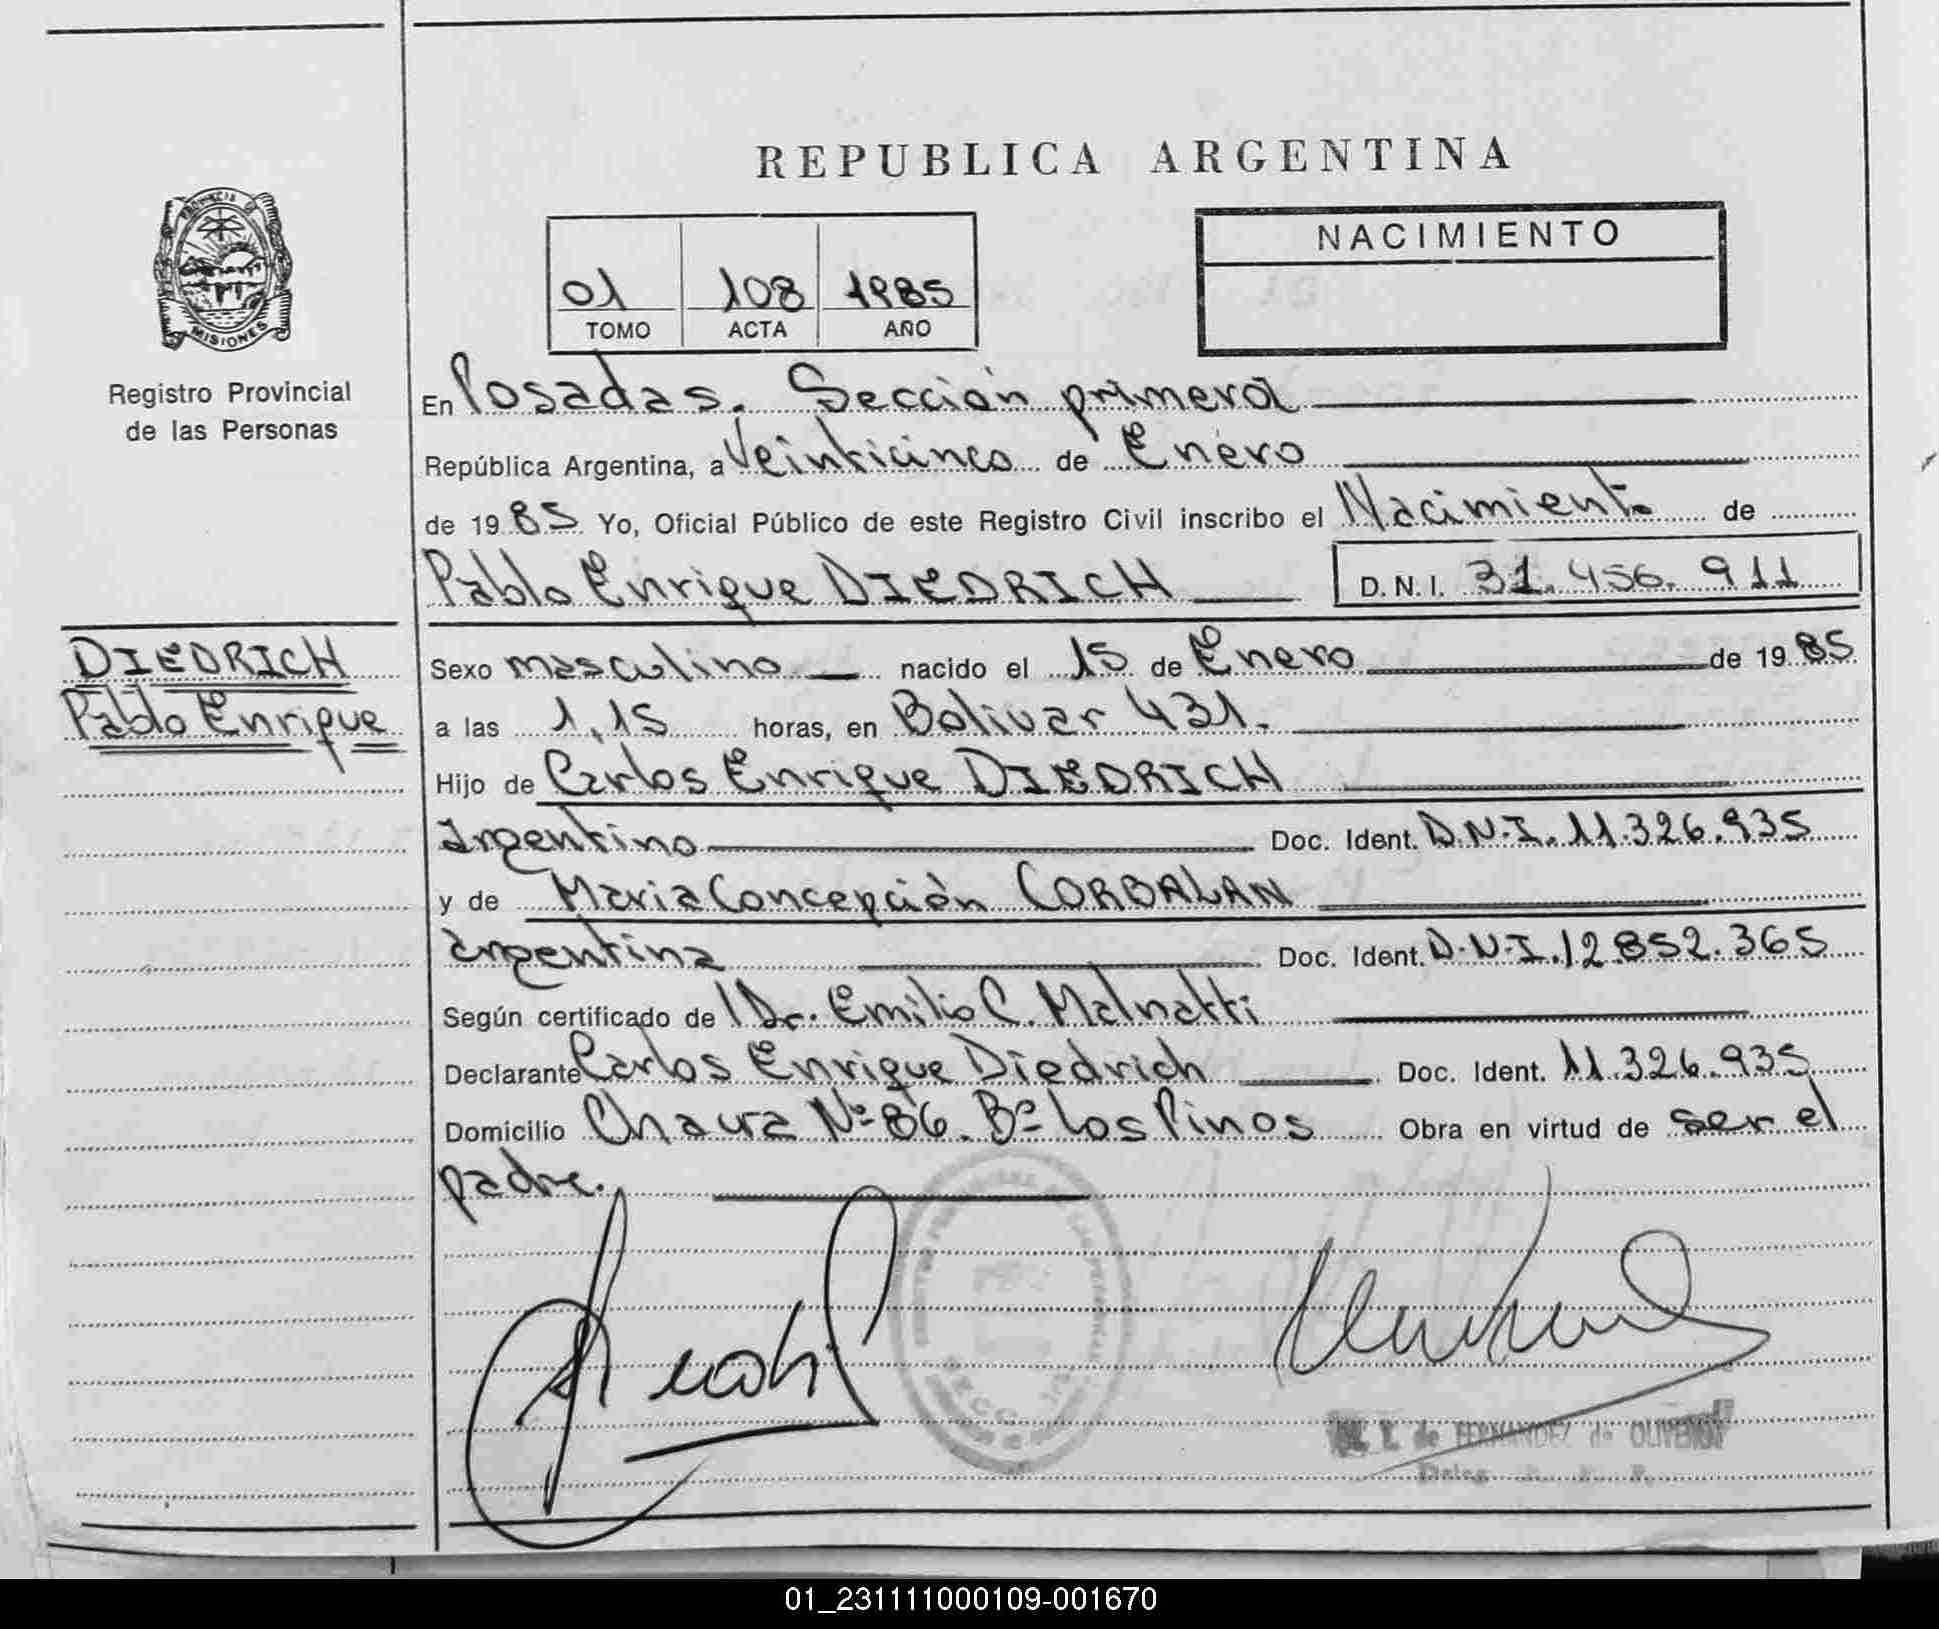 REPUBLICA ARGENTINA
PROVINCIA DE
MISIONES
Registro Provincial
de las Personas
01 108 1985
TOMO ACTA AÑO
NACIMIENTO
En Posadas. Sección primera
República Argentina, a Veinticinco de Enero
de 1985 Yo, Oficial Público de este Registro Civil inscribo el Nacimiento de
Pablo Enrique DIEDRICH D.N.I. 31.456.911
DIEDRICH
Pablo Enrique
Sexo masculino nacido el 15 de Enero de 1985
a las 1,15 horas, en Bolivar 431.
Hijo de Carlos Enrique DIEDRICH
argentino Doc. Ident. D.N.I. 11.326.935
y de Maria Concepción CORBALAN
argentina Doc. Ident. D.N.I. 12.852.365
Según certificado de l Dr. Emilio C. Malnatti
Declarante Carlos Enrique Diedrich Doc. Ident. 11.326.935
Domicilio Chacra Nº 86. Bº Los Pinos Obra en virtud de ser el
padre.
de FERNANDEZ de
01_231111000109-001670